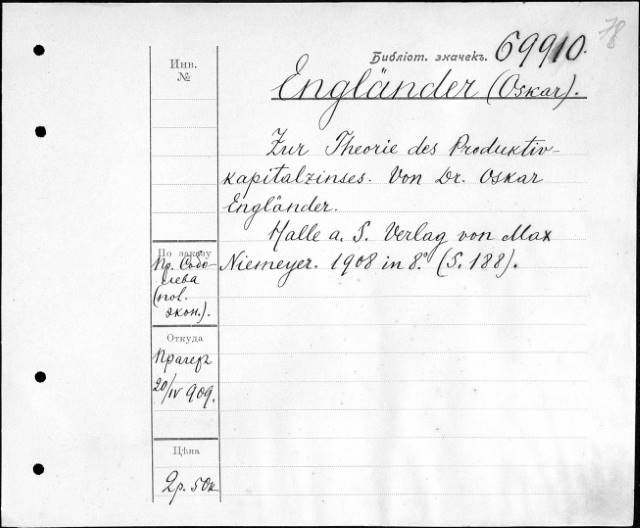 78
Библіот. значекъ. 69910.
Инв.
№
Engländer (Oskar).
Zur Theorie des Produktiv-
kapitalzinses. Von Dr. Oskar
Engländer.
Halle a. S. Verlag von Max
Niemeyer. 1908 in 8.° (S. 188).
По заказу
Пр. Собо-
лева
(пол.
экон.).
Откуда
Прагеръ
20/IV 909.
Цѣна
2р. 50к